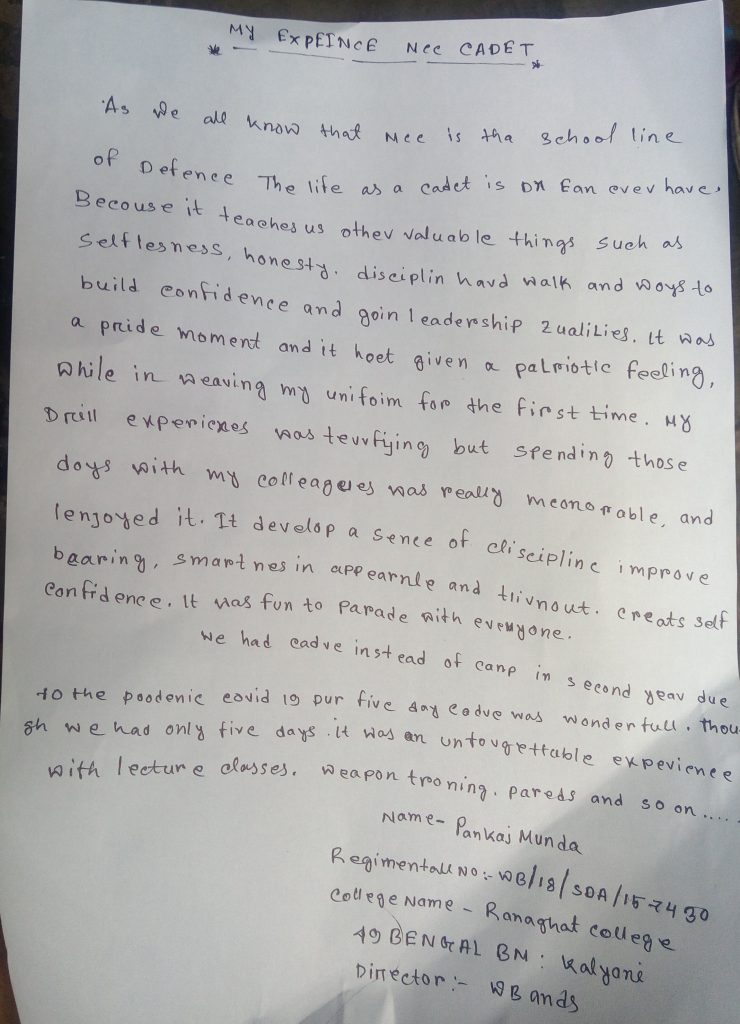 MY EXPEINCE NCC CADET
As We all know that NCC is tha school line
of Defence The life as a cadet is can ever have,
Becouse it teaches us other valuable things such as
Selflesness, honesty. disciplin hard walk and ways to
build confidence and goin leadership qualities. It was
a pride moment and it hoet given a patriotic feeling,
While in wearing my uniform for the first time. My
Drill was terrfying but spending those
doys with my colleagues was really memorable, and
I enjoyed it. It develop a sence of discipline improve
baaring, smartnes in and . creats self
Confidence. It was fun to parade with everyone.
We had cadre instead of camp in second year due
to the covid 19 our five day cadre was wonderfull. thou
gh we had only five days. it was an unforgettable experience
with lecture classes. weapon troning. pareds and so on.....
Name- Pankaj Munda
Regimentall No:- WB/18/SDA/157430
College Name - Ranaghat college
49 BENGAL BN: Kalyani
Director:- WB ands